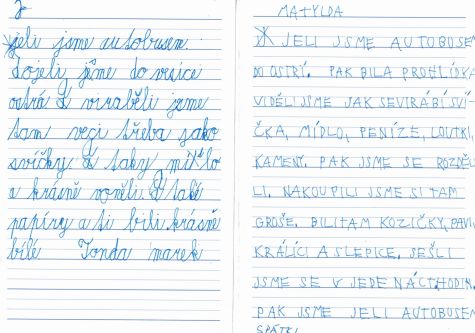 jeli jsme autobusem.
Dojeli jsme do vesice
ostrá a viraběli jsme
tam vjeci třeba jako
svíčky a taky mítlo
a krásně voněli a také
papíry a ti bili krásně
bílé Tonda marek
MATYLDA
JELI JSME AUTOBUSEM
DO OSTRÍ. PAK BILA PROHLÍDK
VIDĚLI JSME JAK SEVIRÁBÍ SVÍ
ČKA, MÍDLO, PENÍZE, LOUTKI,
KAMENY. PAK JSME SE ROZDĚL
LI. NAKOUPILI JSME SI TAM
GROŠE. BILI TAM KOZIČKY, PAVI,
KRÁLÍCI A SLEPICE. SEŠLI
JSME SE V JEDENÁCT HODIN.
PAK JSME JELI AUTOBUSEM
SPÁTKI